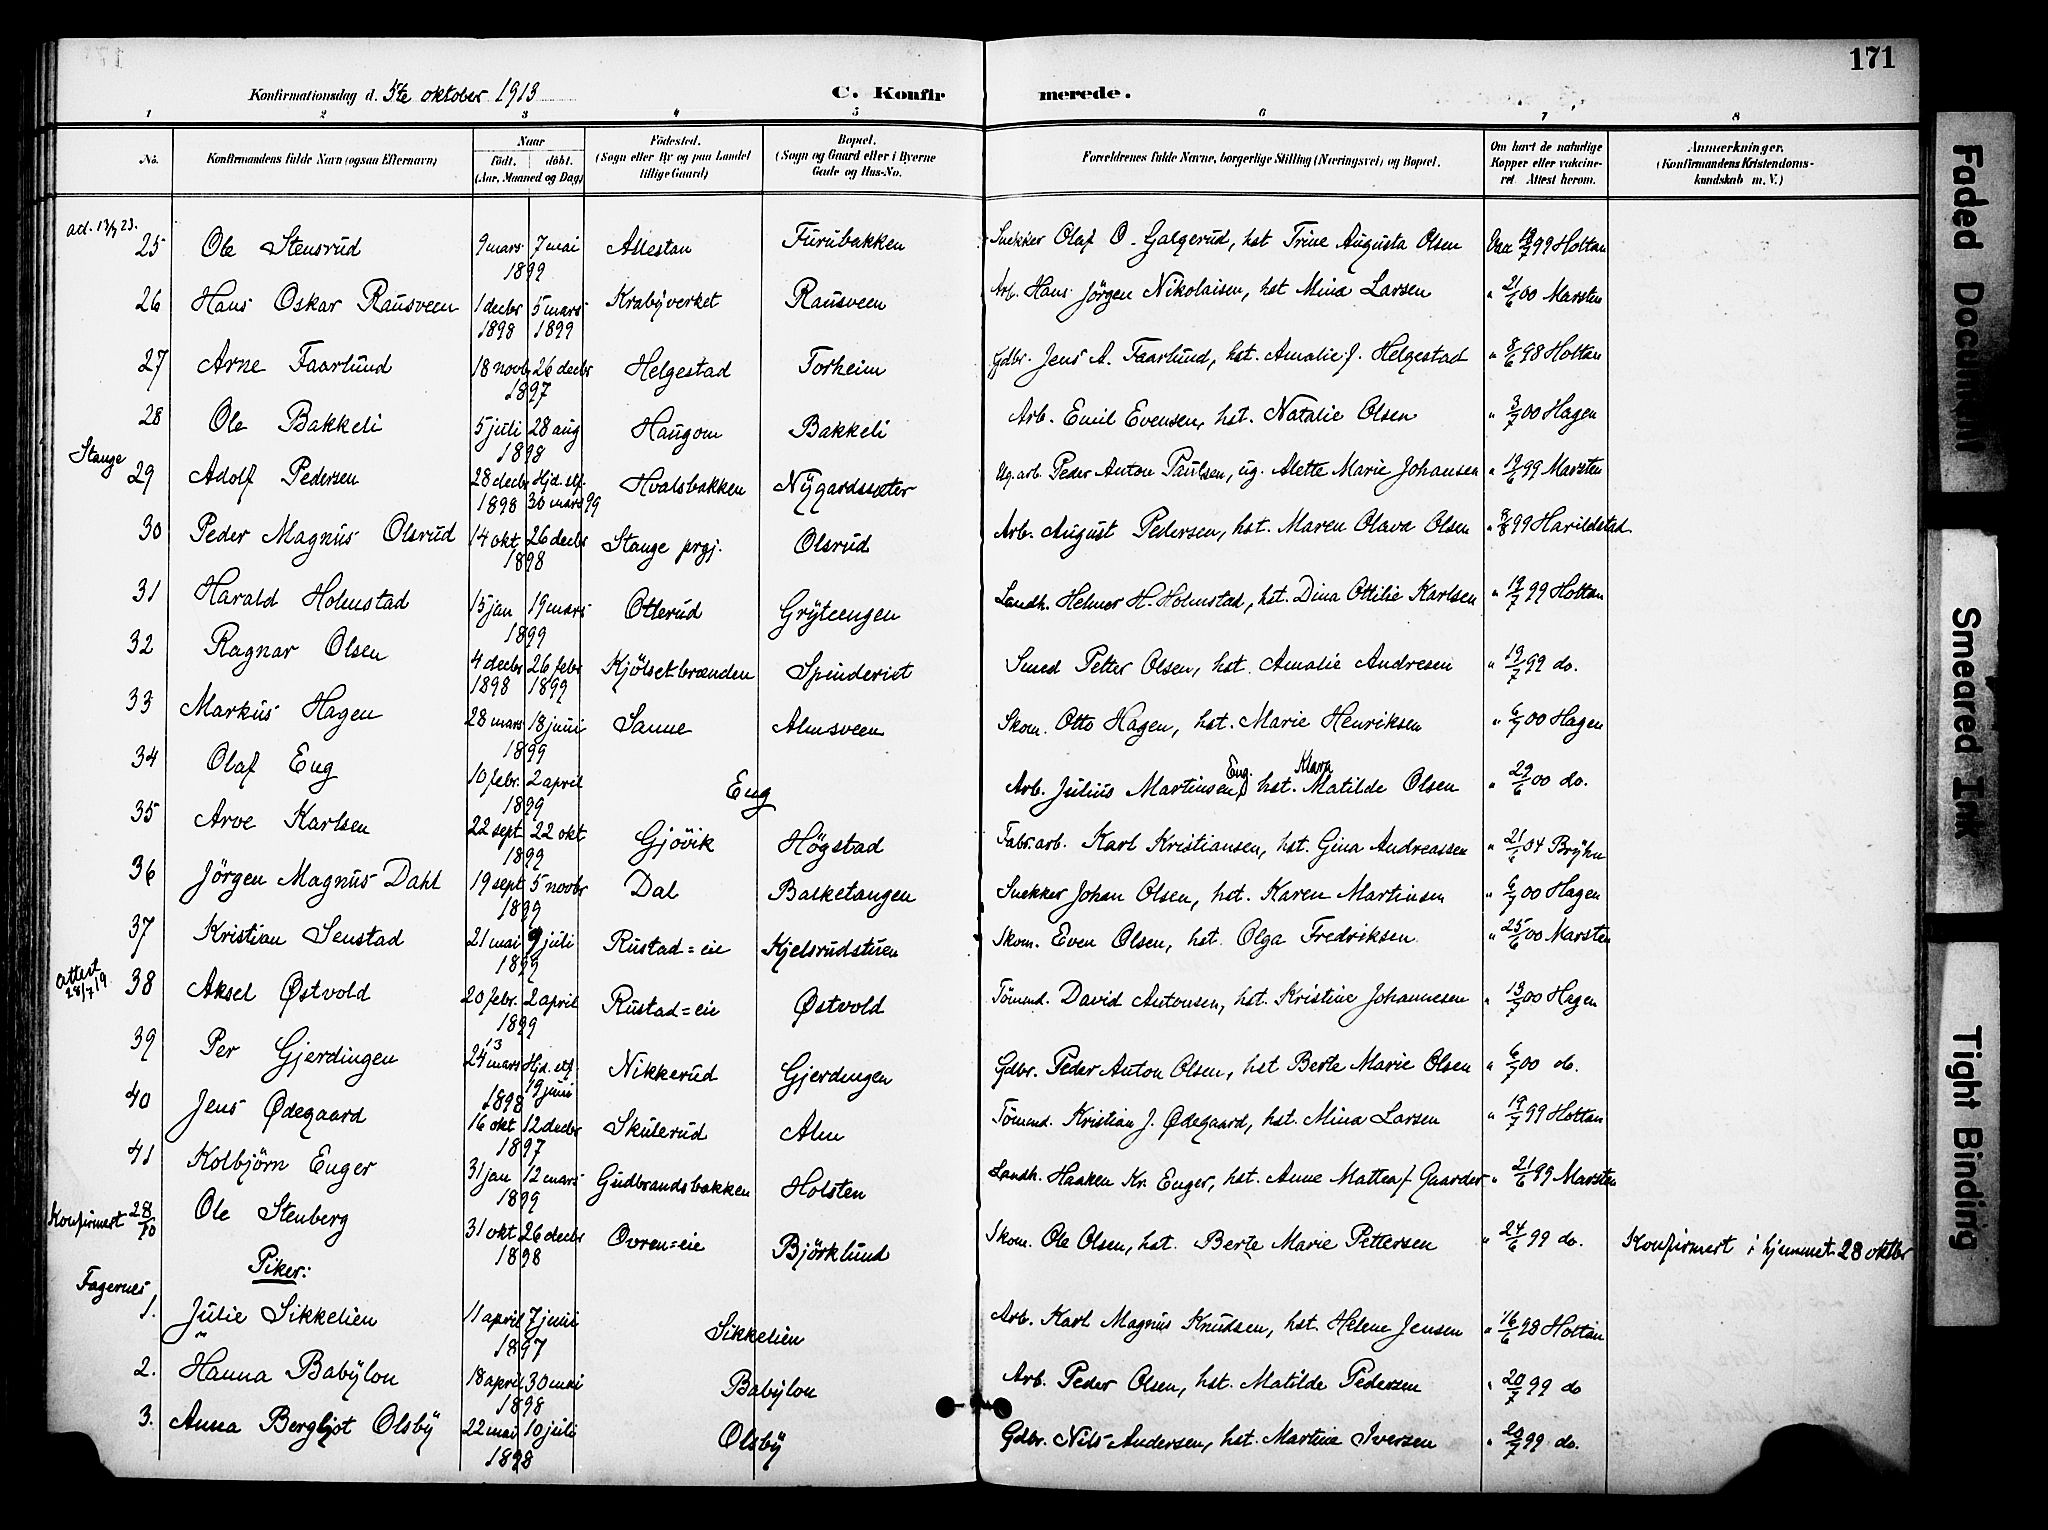 171
Konfirmationsdag d. 5te oktober 1913
C. Konfirmerede.
1 2 3 4 5 6 7 8
No.
Konfirmandens fulde Navn (ogsaa Efternavn)
Naar
født. døbt.
(Aar, Maaned og Dag)
Fødested.
(Sogn eller By og paa Landet
tillige Gaard)
Bopæl.
(Sogn og Gaard eller i Byerne
Gade og Hus-No.
Forældrenes fulde Navne, borgerlige Stilling (Næringsvei) og Bopæl.
Om havt de naturlige
Kopper eller vakcine-
ret. Attest herom.
Anmærkninger.
(Konfirmandens Kristendoms-
kundskab m. V.)
25 Ole Stensrud 9 mars 7 mai 1899 Allestan Furubakken Snekker Olaf O. Galgerud, hst Trine Augusta Olsen Vac 19/7 99 Holtan
26 Hans Oskar Rausveen 1 decbr 1898 5 mars 1899 Krabyverket Rausveen Arb. Hans Jörgen Nikolaisen, hst Mina Larsen " 21/6 00 Marsten
27 Arne Faarlund 18 novb 26 decbr 1897 Helgestad Torheim Gdbr. Jens A. Faarlund, hst. Amalie J. Helgestad " 8/6 98 Holtan
28 Ole Bakkeli 5 juli 28 aug 1898 Haugom Bakkeli Arb. Emil Evensen, hst. Natalie Olsen " 3/7 00 Hagen
Stange
29 Adolf Pedersen 28 decbr 1898 Hjd. stf. 30 mars 99 Hvalsbakken Nygardssæter Ug. arb. Peder Anton Paulsen, ug. Alette Marie Johansen " 19/6 99 Marsten
30 Peder Magnus Olsrud 14 okt 26 decbr 1898 Stange prgj. Olsrud Arb. August Pedersen, hst. Maren Olava Olsen " 99 Harildstad
31 Harald Holmstad 15 jan 19 mars 1899 Otterud Gryteengen Landh. Helmer H. Holmstad, hst. Dina Ottilie Karlsen " 19/7 99 Holtan
32 Ragnar Olsen 4 decbr 1898 26 febr 1899 Kjölsetbrænden Spinderiet Smed Petter Olsen, hst. Amalie Andresen " 19/7 99 do.
33 Markus Hagen 28 mars 18 juni 1899 Sanne Almsveen Skom. Otto Hagen, hst. Marie Henriksen " 6/7 00 Hagen
34 Olaf Eng 10 febr. 2 april 1899 Eng Arb. Julius Martinsen Eng, hst. Klara Matilde Olsen " 29/6 00 do.
35 Arve Karlsen 22 sept 22 okt 1899 Gjövik Högstad Fabr. arb. Karl Kristiansen, hst. Gina Andreassen " 21/6 04 Bryhn
36 Jörgen Magnus Dahl 19 sept 5 novbr 1899 Dal Balketangen Snekker Johan Olsen, hst. Karen Martinsen " 6/7 00 Hagen
37 Kristian Senstad 21 mai 9 juli 1899 Rustad=eie Kjelsrudstuen Skom. Even Olsen, hst. Olga Fredriksen " 25/6 00 Marsten
Attest 28/7 19
38 Aksel Østvold 20 febr. 2 april 1899 Rustad=eie Østvold Tömmd. David Antonsen, hst. Kristine Johannesen " 13/7 00 Hagen
39 Per Gjerdingen 24 mars Hjd. stf. 19 juni 1898 Nikkerud Gjerdingen Gdbr. Peder Anton Olsen, hst Berte Marie Olsen " 6/7 00 do.
40 Jens Ødegaard 16 okt 12 decbr 1897 Skulerud Alm Tömmd. Kristian J. Ødegaard, hst. Mina Larsen " 19/7 99 Holtan
41 Kolbjörn Enger 31 jan 12 mars 1899 Gudbrandsbakken Holsten Landh. Haaken Kr. Enger, hst. Anne Mattea f. Gaarder " 21/6 99 Marsten
Konfirmert 28/10 Ole Stenberg 31 okt 26 decbr 1898 Ovren=eie Björklund Skom. Ole Olsen, hst. Berte Marie Pettersen " 24/6 99 do. Konfirmert i hjemmet 28 oktbr
Piker:
Fagernes
1. Julie Sikkelien 11 april 7 juni 1897 Sikkelien Arb. Karl Magnus Knudsen, hst. Helene Jensen " 16/6 98 Holtan
2. Hanna Babylon 18 april 30 mai 1898 Babylon Arb. Peder Olsen, hst. Matilde Pedersen " 20/7 99 do
3. Anna Bergljot Olsby 22 mai 10 juli 1898 Olsby Gdbr. Nils Andersen, hst. Martine Iversen " 20/7 99 do.
Faded Document
Smeared Ink
Tight Binding